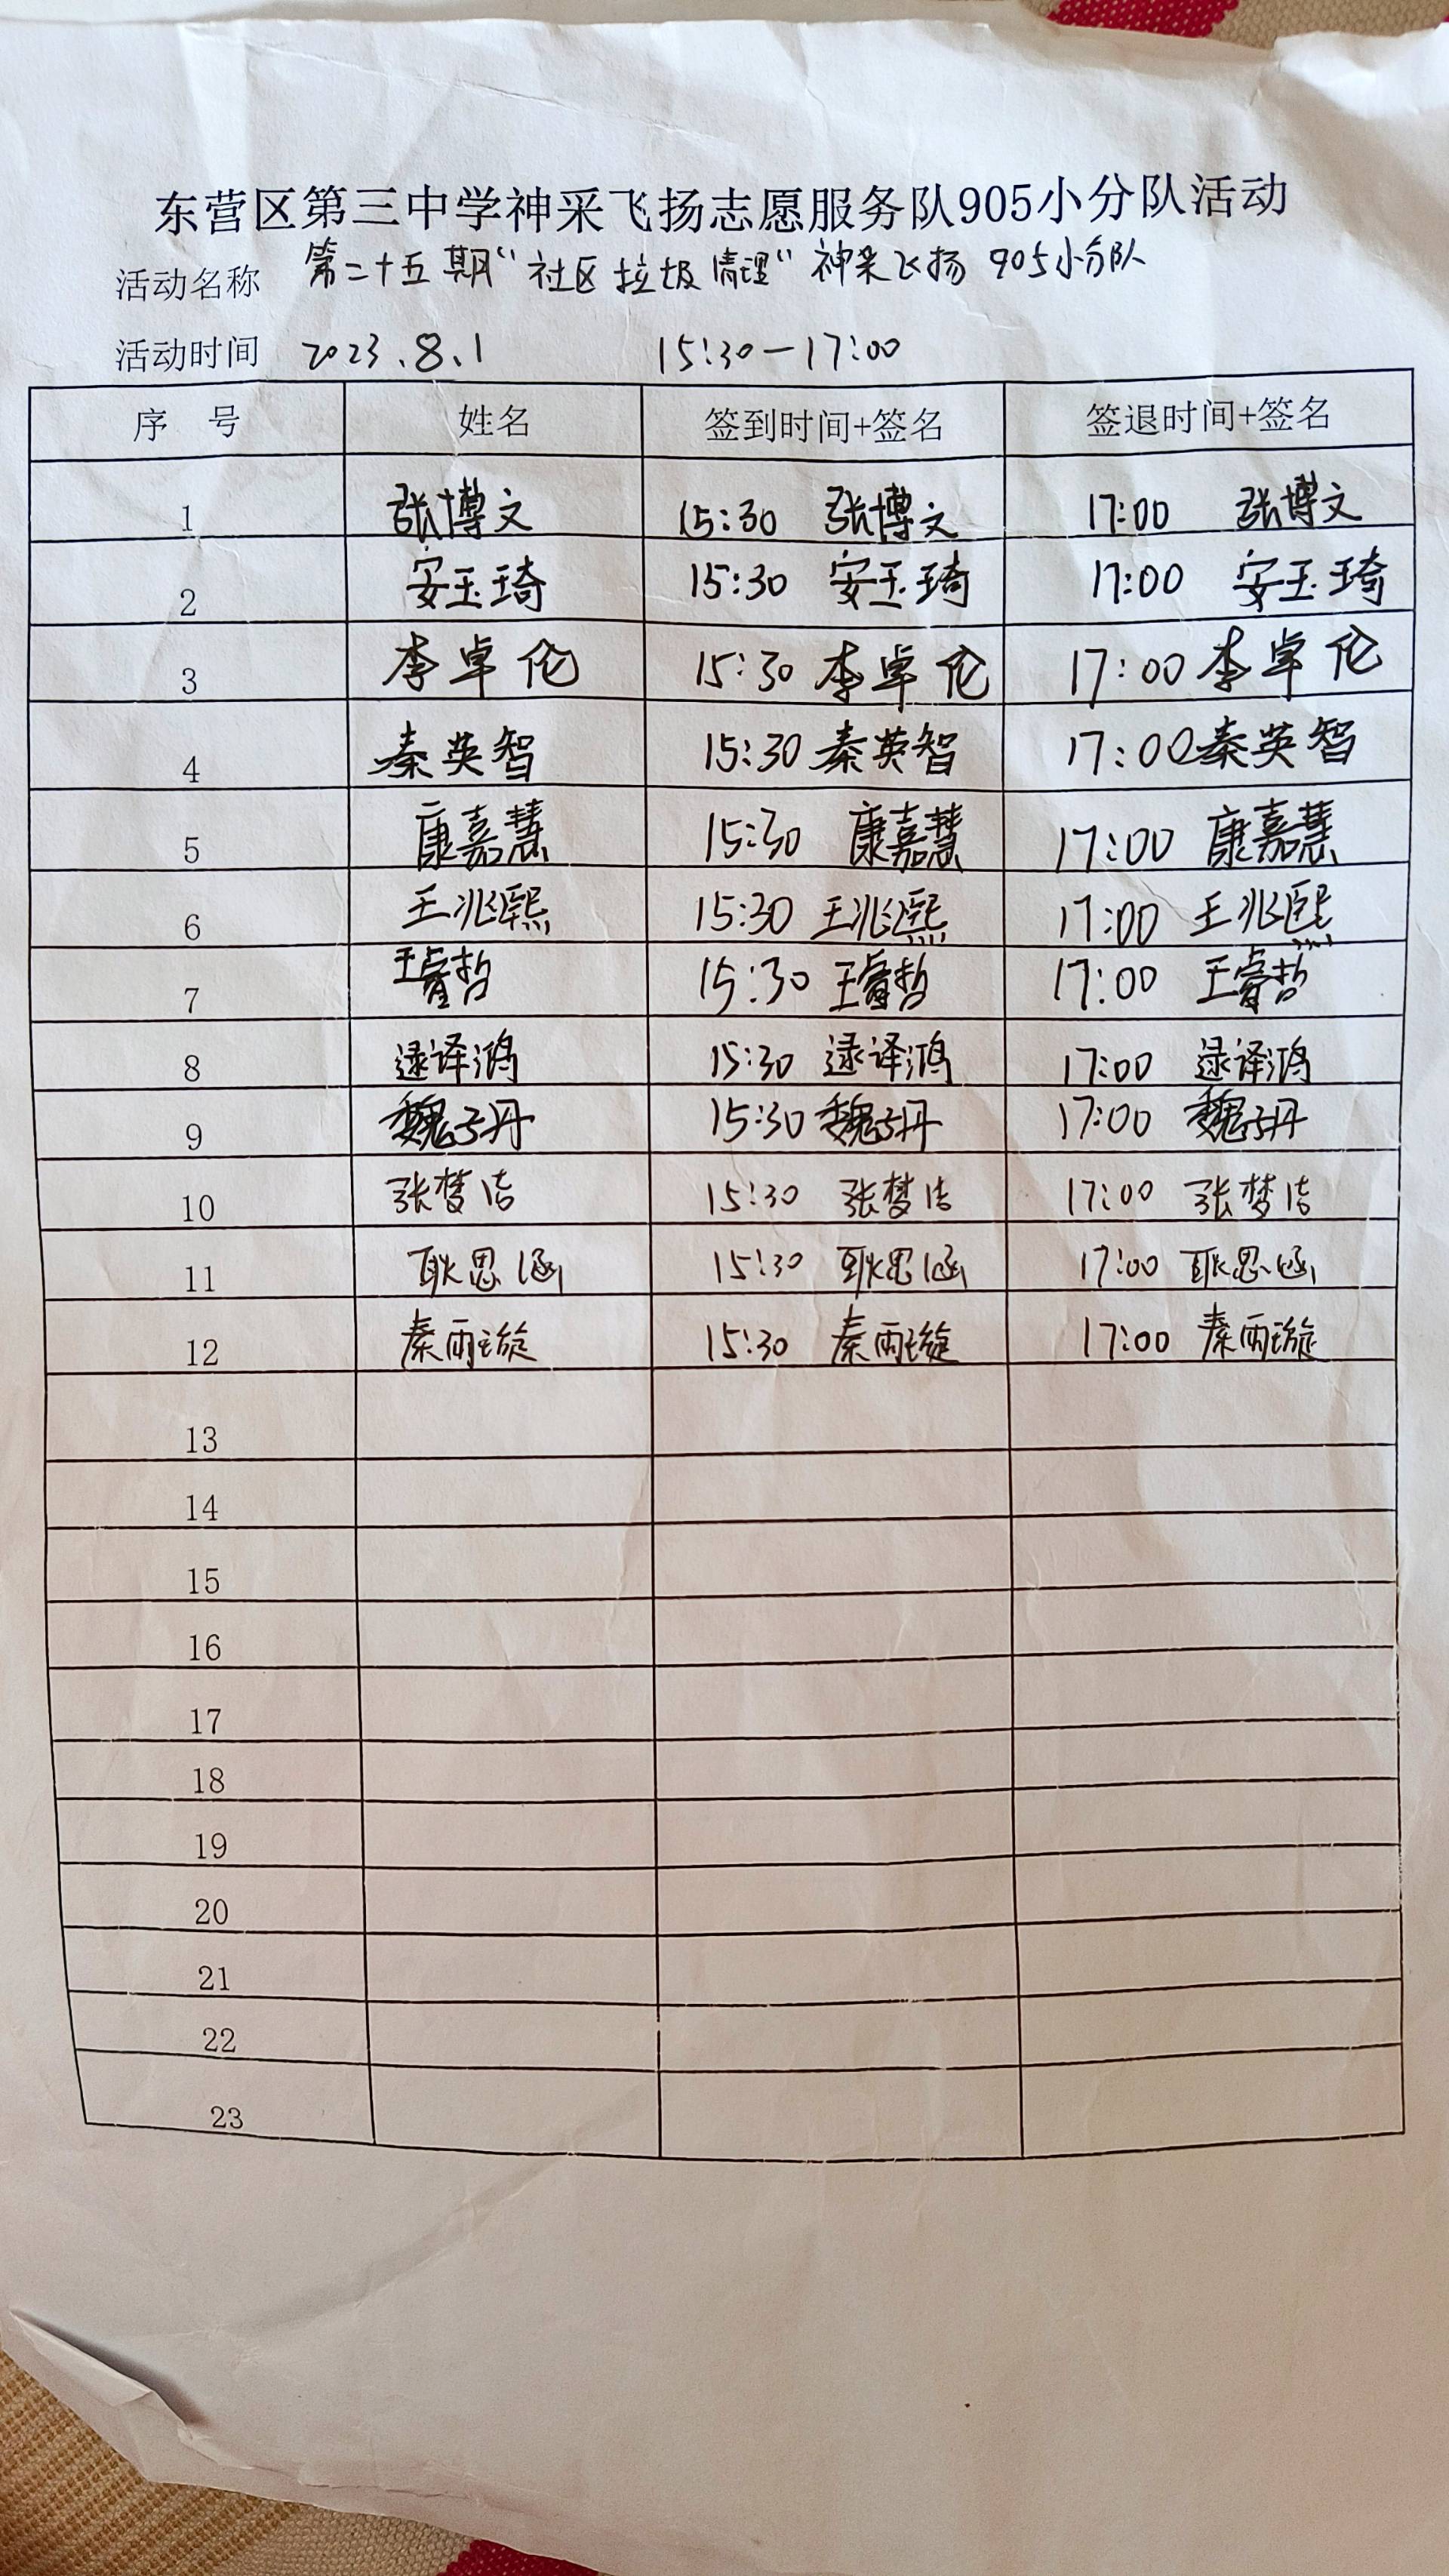 东营区第三中学神采飞扬志愿服务队905小分队活动
活动名称 第二十五期“社区垃圾清理”神采飞扬 905小分队
活动时间 2023.8.1 15:30—17:00
序 号 姓名 签到时间+签名 签退时间+签名
1 张博文 15:30 张博文 17:00 张博文
2 安玉琦 15:30 安玉琦 17:00 安玉琦
3 李卓伦 15:30 李卓伦 17:00 李卓伦
4 秦英智 15:30 秦英智 17:00 秦英智
5 康嘉慧 15:30 康嘉慧 17:00 康嘉慧
6 王兆熙 15:30 王兆熙 17:00 王兆熙
7 王睿哲 15:30 王睿哲 17:00 王睿哲
8 逯译鸿 15:30 逯译鸿 17:00 逯译鸿
9 魏子丹 15:30 魏子丹 17:00 魏子丹
10 张梦洁 15:30 张梦洁 17:00 张梦洁
11 耿思涵 15:30 耿思涵 17:00 耿思涵
12 秦雨璇 15:30 秦雨璇 17:00 秦雨璇
13
14
15
16
17
18
19
20
21
22
23